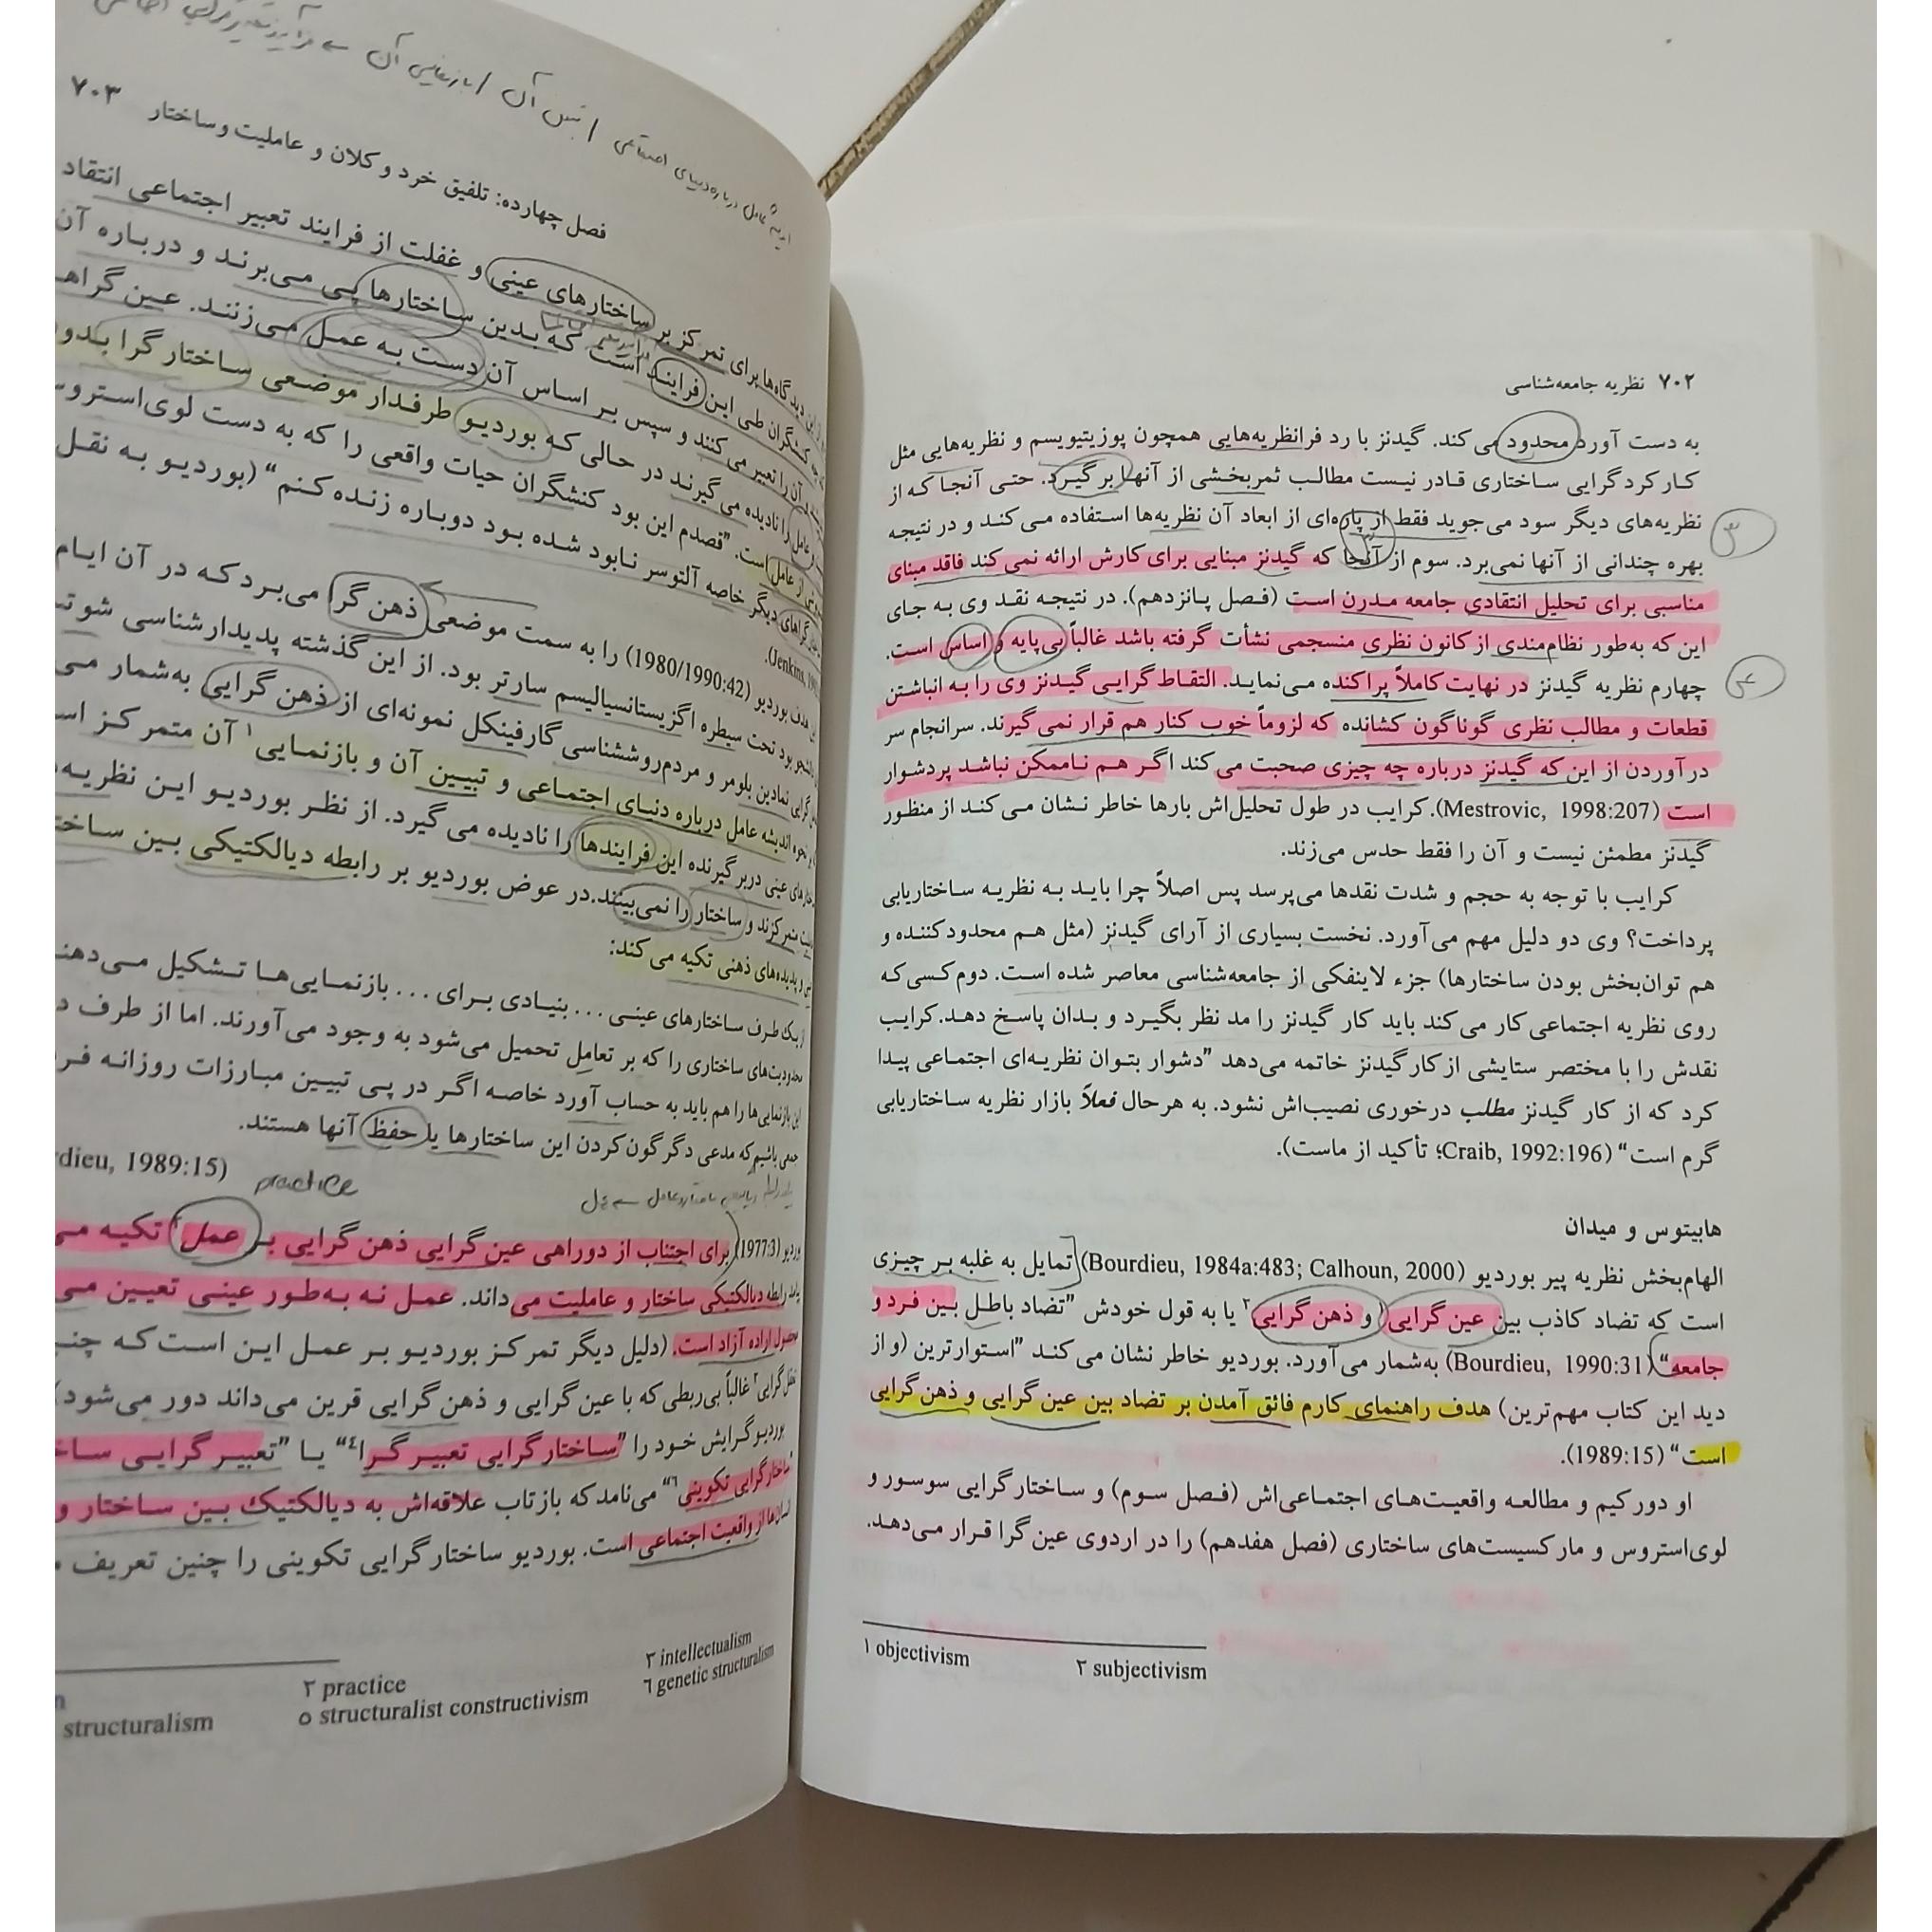 ۷۰۲ نظریه جامعه‌شناسی
به دست آورد محدود می‌کند. گیدنز با رد فرانظریه‌هایی همچون پوزیتیویسم و نظریه‌هایی مثل
کارکردگرایی ساختاری قادر نیست مطالب ثمربخشی از آنها برگیرد. حتی آنجا که از
نظریه‌های دیگر سود می‌جوید فقط از پاره‌ای از ابعاد آن نظریه‌ها استفاده می‌کند و در نتیجه
بهره چندانی از آنها نمی‌برد. سوم از آنجا که گیدنز مبنایی برای کارش ارائه نمی‌کند فاقد مبنای
مناسبی برای تحلیل انتقادی جامعه مدرن است (فصل پانزدهم). در نتیجه نقد وی به جای
این که به‌طور نظام‌مندی از کانون نظری منسجمی نشأت گرفته باشد غالباً بی‌پایه و اساس است.
چهارم نظریه گیدنز در نهایت کاملاً پراکنده می‌نماید. التقاط‌گرایی گیدنز وی را به انباشتن
قطعات و مطالب نظری گوناگون کشانده که لزوماً خوب کنار هم قرار نمی‌گیرند. سرانجام سر
درآوردن از این که گیدنز درباره چه چیزی صحبت می‌کند اگر هم ناممکن نباشد پردشوار
است (Mestrovic, 1998:207). کرایب در طول تحلیل‌اش بارها خاطر نشان می‌کند از منظور
گیدنز مطمئن نیست و آن را فقط حدس می‌زند.
کرایب با توجه به حجم و شدت نقدها می‌پرسد پس اصلاً چرا باید به نظریه ساختاریابی
پرداخت؟ وی دو دلیل مهم می‌آورد. نخست بسیاری از آرای گیدنز (مثل هم محدودکننده و
هم توان‌بخش بودن ساختارها) جزء لاینفکی از جامعه‌شناسی معاصر شده است. دوم کسی که
روی نظریه اجتماعی کار می‌کند باید کار گیدنز را مد نظر بگیرد و بدان پاسخ دهد. کرایب
نقدش را با مختصر ستایشی از کار گیدنز خاتمه می‌دهد "دشوار بتوان نظریه‌ای اجتماعی پیدا
کرد که از کار گیدنز مطلب درخوری نصیب‌اش نشود. به هر حال فعلاً بازار نظریه ساختاریابی
گرم است" (Craib, 1992:196؛ تأکید از ماست).
هابیتوس و میدان
الهام‌بخش نظریه پیر بوردیو (Bourdieu, 1984a:483; Calhoun, 2000) تمایل به غلبه بر چیزی
است که تضاد کاذب بین عین‌گرایی۱ و ذهن‌گرایی۲ یا به قول خودش "تضاد باطل بین فرد و
جامعه" (Bourdieu, 1990:31) به‌شمار می‌آورد. بوردیو خاطر نشان می‌کند "استوارترین (و از
دید این کتاب مهم‌ترین) هدف راهنمای کارم فائق آمدن بر تضاد بین عین‌گرایی و ذهن‌گرایی
است" (1989:15).
او دورکیم و مطالعه واقعیت‌های اجتماعی‌اش (فصل سوم) و ساختارگرایی سوسور و
لوی‌استروس و مارکسیست‌های ساختاری (فصل هفدهم) را در اردوی عین‌گرا قرار می‌دهد.
۱ objectivism ۲ subjectivism
فصل چهارده: تلفیق خرد و کلان و عاملیت و ساختار ۷۰۳
دیدگاه‌ها برای تمرکز بر ساختارهای عینی و غفلت از فرایند تعبیر اجتماعی انتقاد
کنشگران طی این فرایند است که بدین ساختارها پی می‌برند و درباره آن
آن را تعبیر می‌کنند و سپس بر اساس آن دست به عمل می‌زنند. عین‌گراها
عامل را نادیده می‌گیرند در حالی که بوردیو طرفدار موضعی ساختارگرا بدون
از عامل است. "قصدم این بود کنشگران حیات واقعی را که به دست لوی‌استروس
دیگر خاصه آلتوسر نابود شده بود دوباره زنده کنم" (بوردیو به نقل
هدف بوردیو (1980/1990:42) را به سمت موضعی ذهن‌گرا می‌برد که در آن ایام
بود تحت سیطره اگزیستانسیالیسم سارتر بود. از این گذشته پدیدارشناسی شوتس
گرایی نمادین بلومر و مردم‌روششناسی گارفینکل نمونه‌ای از ذهن‌گرایی به‌شمار می
نحوه اندیشه عامل درباره دنیای اجتماعی و تبیین آن و بازنمایی۱ آن متمرکز است
عینی دربرگیرنده این فرایندها را نادیده می‌گیرد. از نظر بوردیو این نظریه‌ها
متمرکزند و ساختار را نمی‌بینند. در عوض بوردیو بر رابطه دیالکتیکی بین ساختار
و پدیده‌های ذهنی تکیه می‌کند:
از یک طرف ساختارهای عینی ... بنیادی برای ... بازنمایی‌ها تشکیل می‌دهند
محدودیت‌های ساختاری را که بر تعامل تحمیل می‌شود به وجود می‌آورند. اما از طرف
این بازنمایی‌ها را هم باید به حساب آورد خاصه اگر در پی تبیین مبارزات روزانه
جمعی باشیم که مدعی دگرگون کردن این ساختارها یا حفظ آنها هستند.
rdieu, 1989:15)
practice
بوردیو (1977:3) برای اجتناب از دوراهی عین‌گرایی ذهن‌گرایی بر عمل۲ تکیه می
رابطه دیالکتیکی ساختار و عاملیت می‌داند. عمل نه به‌طور عینی تعیین می
محصول اراده آزاد است. (دلیل دیگر تمرکز بوردیو بر عمل این است که
غالباً بی‌ربطی که با عین‌گرایی و ذهن‌گرایی قرین می‌داند دور می‌شود)
بوردیو گرایش خود را "ساختارگرایی تعبیرگرا۴" یا "تعبیرگرایی
ساختارگرایی تکوینی۶" می‌نامد که بازتاب علاقه‌اش به دیالکتیک بین ساختار و
از واقعیت اجتماعی است. بوردیو ساختارگرایی تکوینی را چنین تعریف
۲ practice ۳ intellectualism
structuralism ۵ structuralist constructivism ۶ genetic structuralism